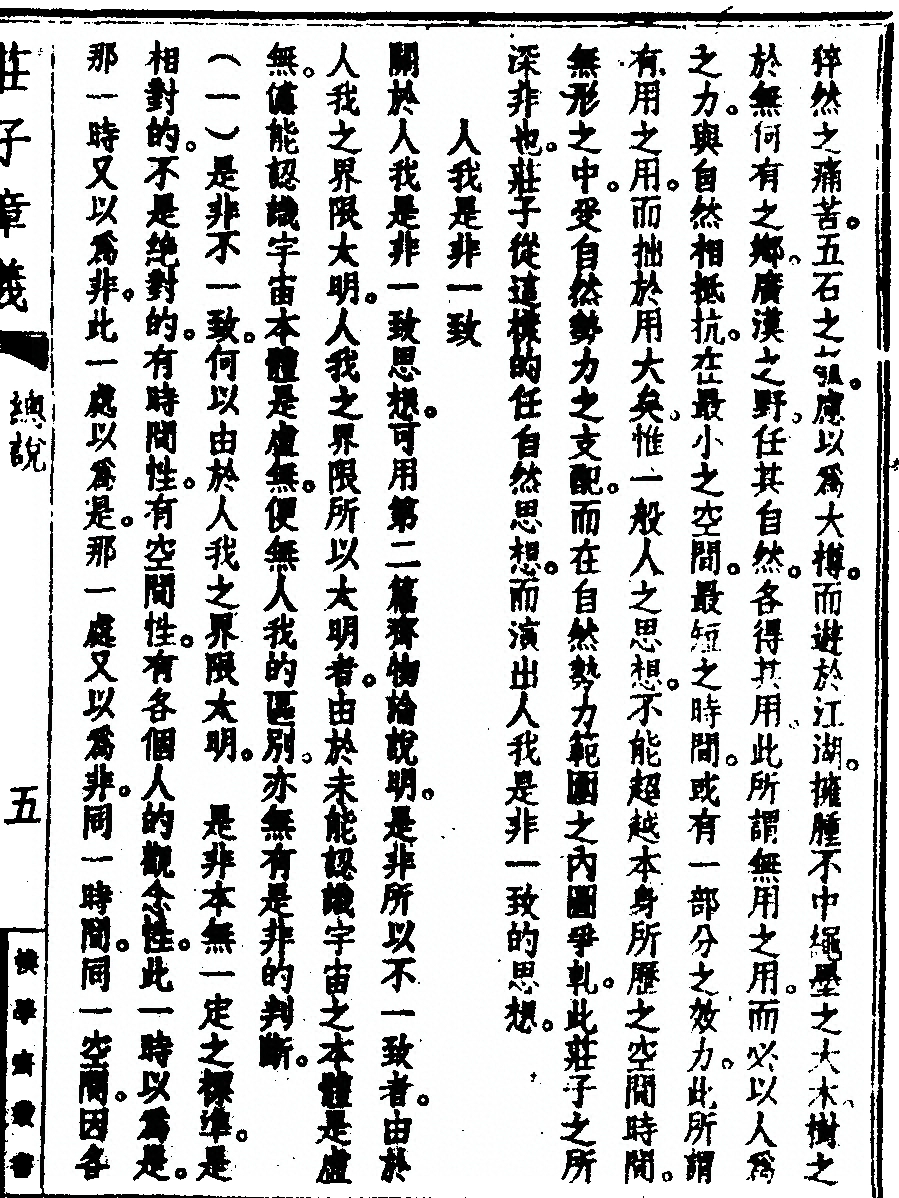 猝然之痛苦。五石之瓠。慮以爲大樽。而遊於江湖。擁腫不中繩墨之大木。樹之
於無何有之鄉。廣漠之野。任其自然。各得其用。此所謂無用之用。而必以人爲
之力。與自然相抵抗。在最小之空間。最短之時間。或有一部分之效力。此所謂
有用之用。而拙於用大矣。惟一般人之思想。不能超越本身所歷之空間時間。
無形之中。受自然勢力之支配。而在自然勢力範圍之內圖爭軋。此莊子之所
深非也。莊子從這樣的任自然思想。而演出人我是非一致的思想。
人我是非一致
關於人我是非一致思想。可用第二篇齊物論說明。是非所以不一致者。由於
人我之界限太明。人我之界限所以太明者。由於未能認識宇宙之本體是虛
無。儻能認識宇宙本體是虛無。便無人我的區別。亦無有是非的判斷。
(一)是非不一致。何以由於人我之界限太明。 是非本無一定之標準。是
相對的。不是絶對的。有時間性。有空間性。有各個人的觀念性。此一時以爲是。
那一時又以爲非。此一處以爲是。那一處又以爲非。同一時間。同一空間。因各
莊子章義
總說
五
樸學齋叢書